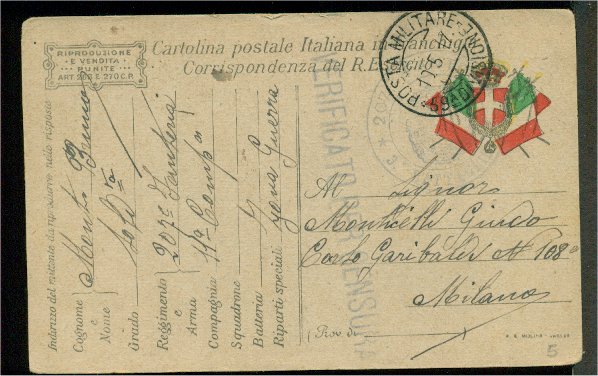 RIPRODUZIONE
E VENDITA
PUNITE
ART. 268 E 270 C.P.
Cartolina postale Italiana in franchigia
Corrispondenza del R. Esercito
POSTA MILITARE
VERIFICATO PER CENSURA
Indirizzo del mittente da riprodurre nelle risposte
Cognome e Nome Bruno
Grado
Reggimento 207° Fanteria
e
Arma
Compagnia 11a Comp
Squadrone
Batteria
Riparti speciali Zona Guerra
Al Signor
Monticelli Guido
Corso Garibaldi N 108
Milano
(Prov. di
5